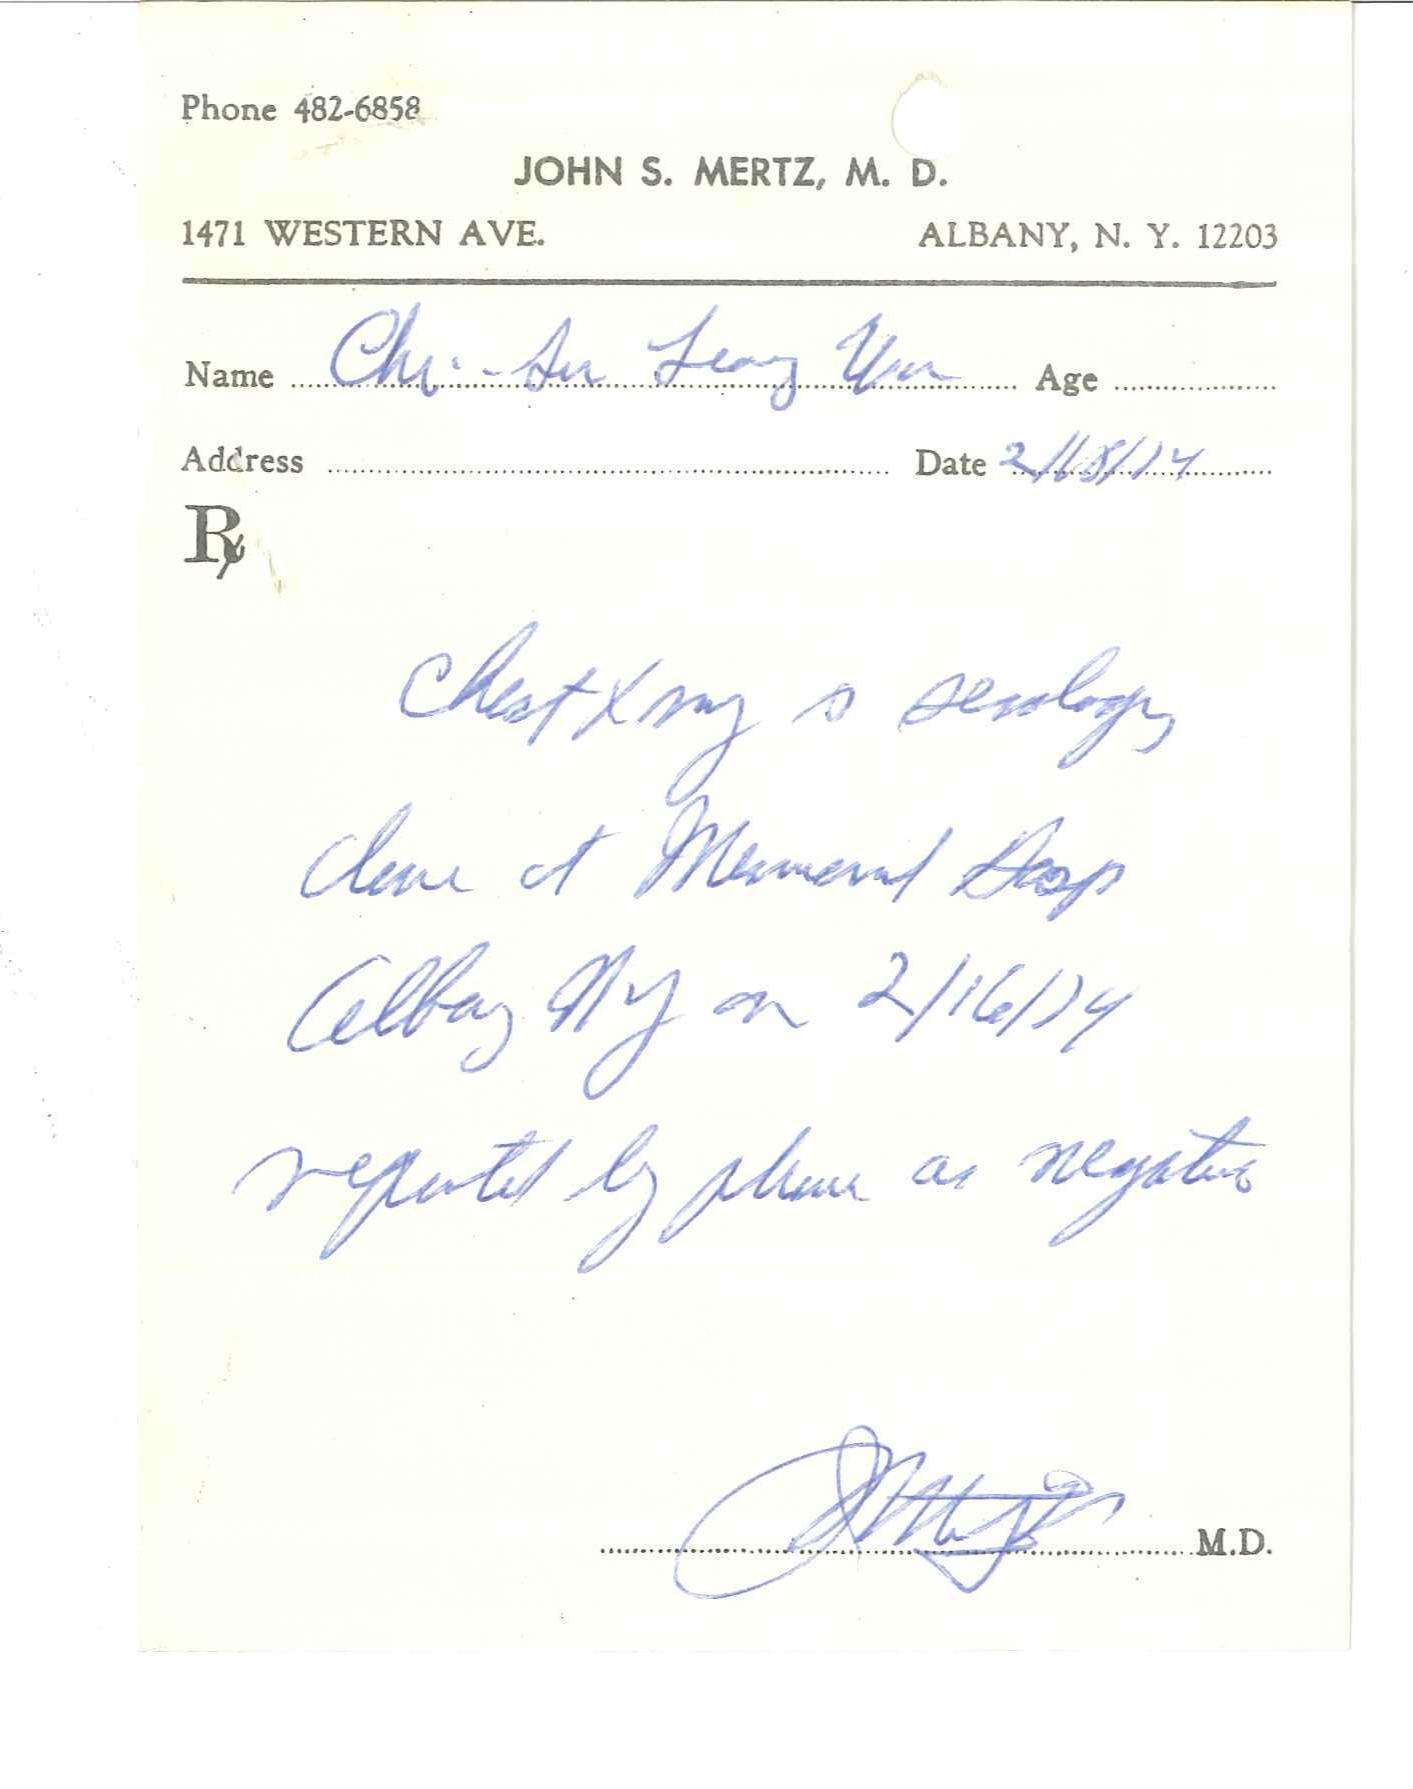 Phone 482-6858
JOHN S. MERTZ, M. D.
1471 WESTERN AVE. ALBANY, N. Y. 12203
Name Chi-Su Leong Age
Address Date 2/18/74
Rx
Chest Xray serology
done at Memorial Hosp
Albany NY on 2/16/74
reported by phone as negative
M.D.